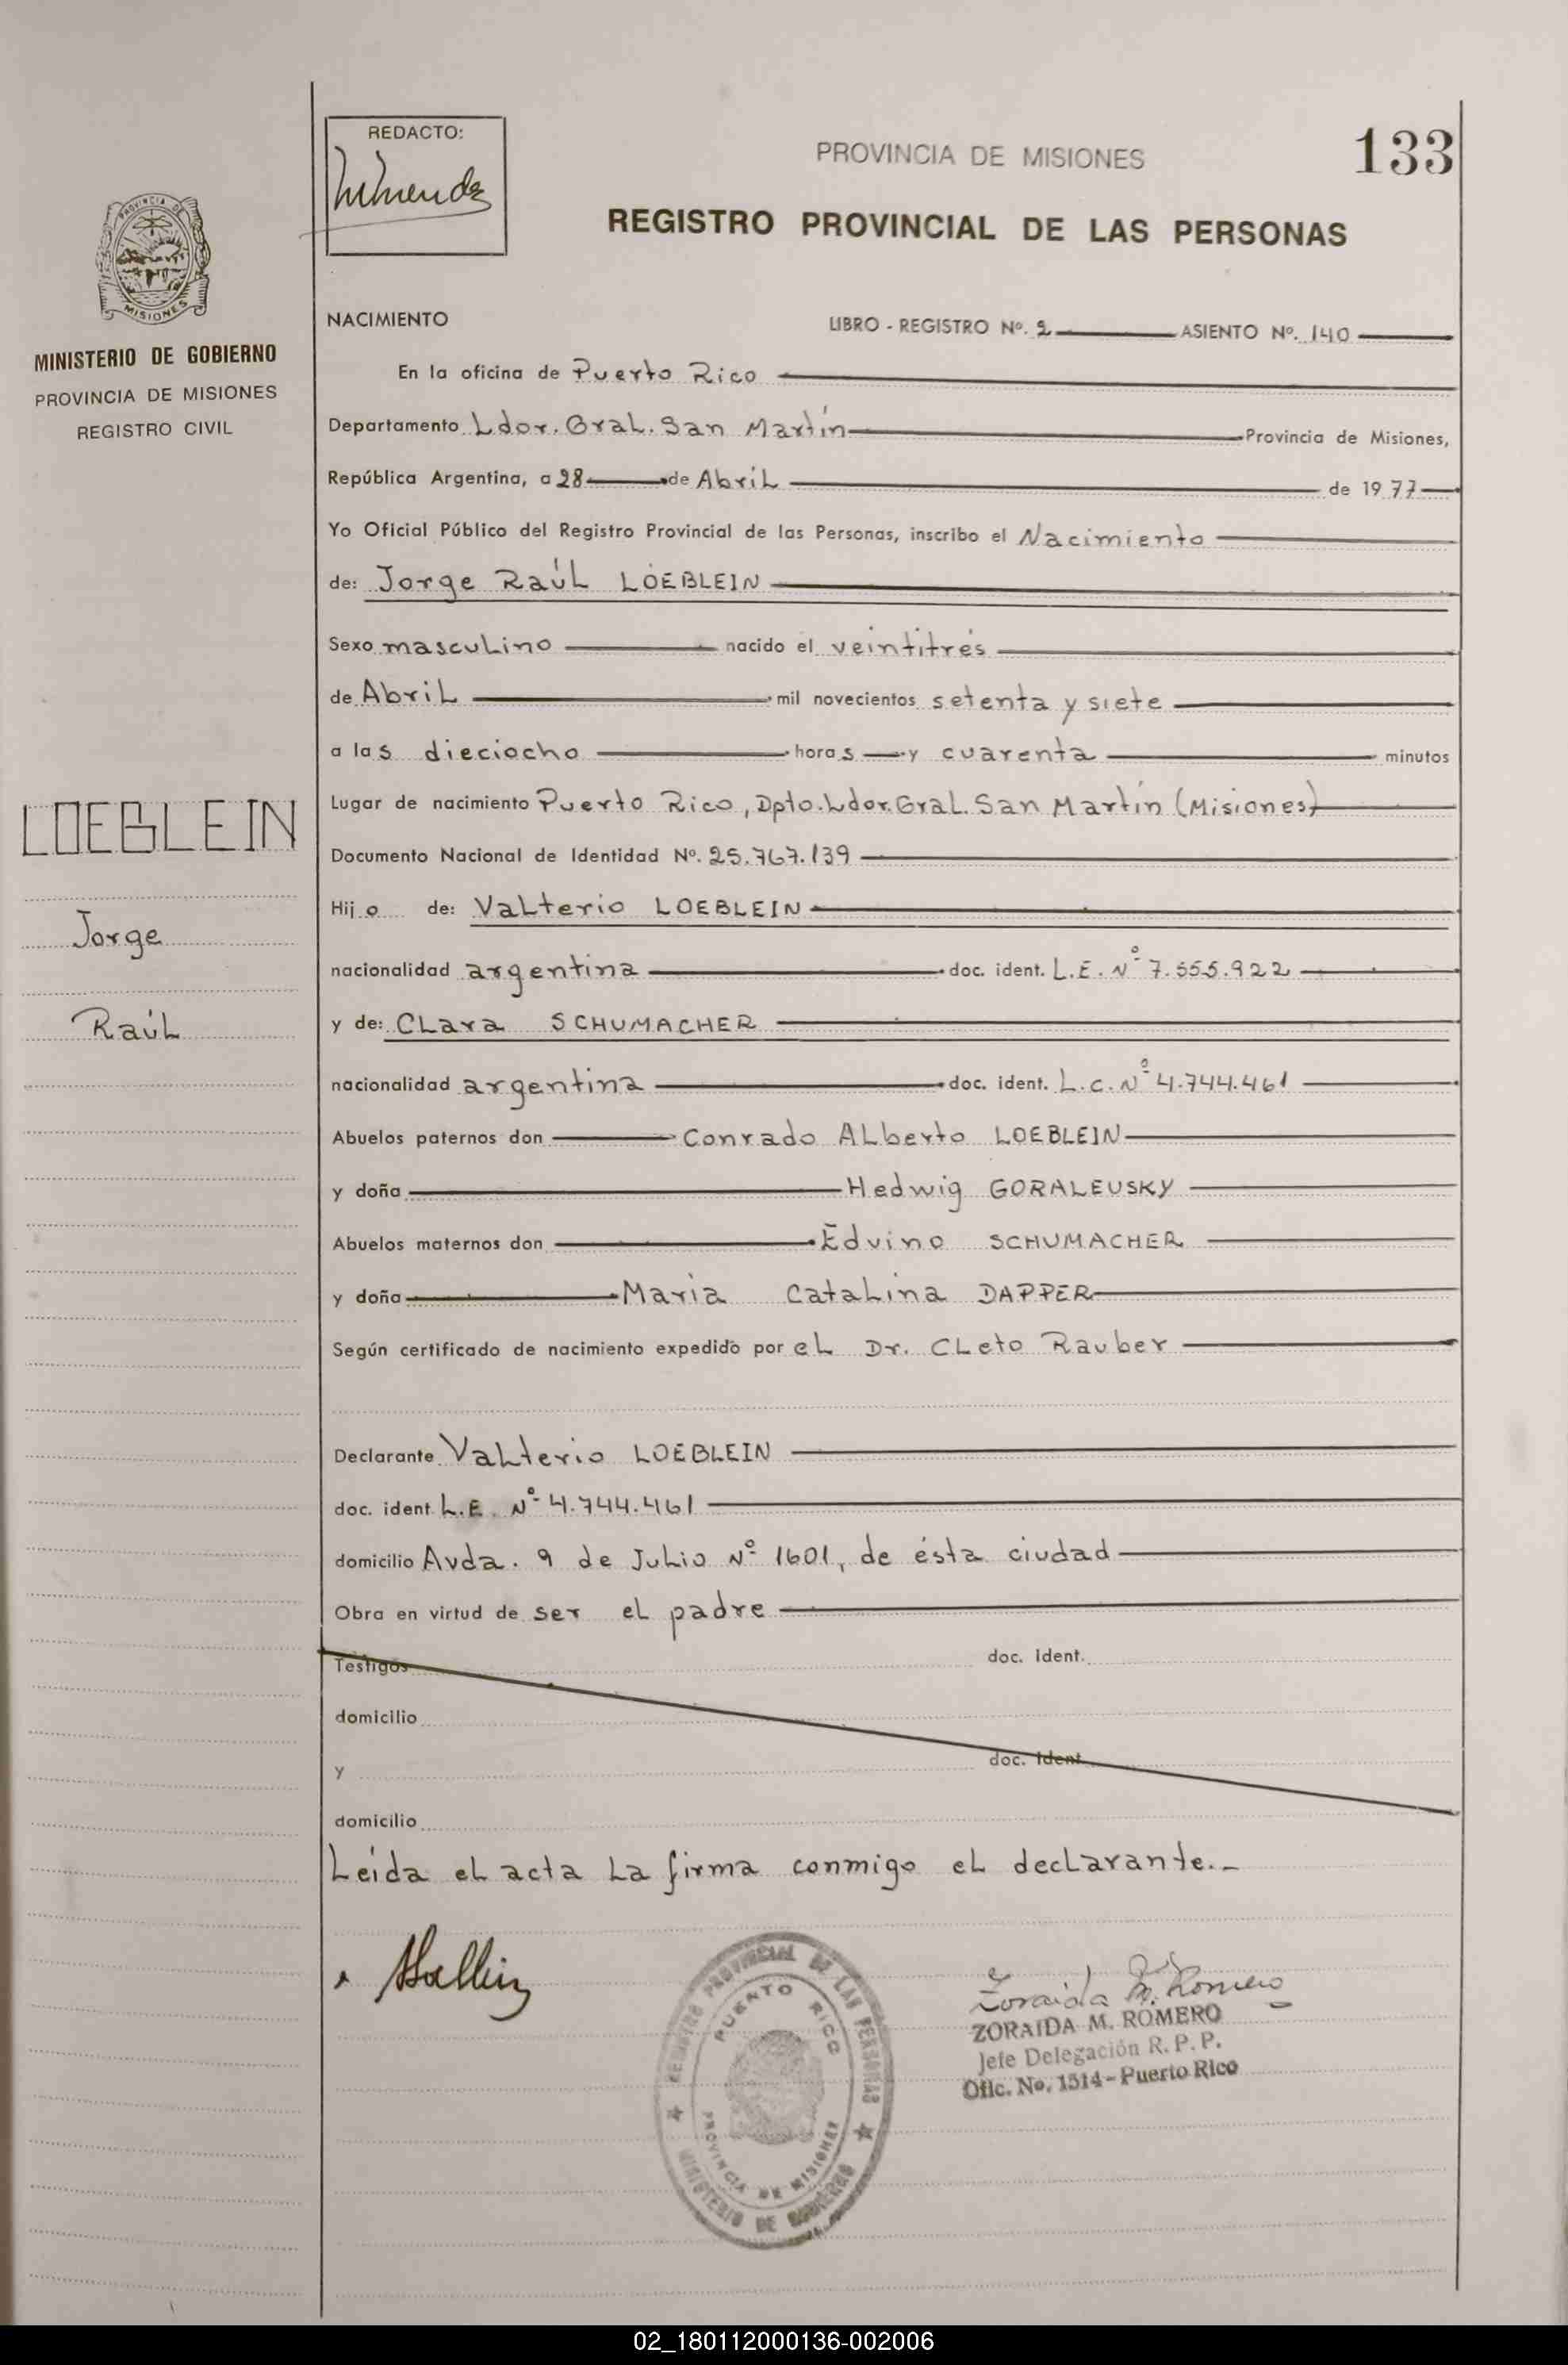 REDACTO:
PROVINCIA DE MISIONES
133
REGISTRO PROVINCIAL DE LAS PERSONAS
PROVINCIA DE
MISIONES
MINISTERIO DE GOBIERNO
PROVINCIA DE MISIONES
REGISTRO CIVIL
LOEBLEIN
Jorge
Raúl
NACIMIENTO
LIBRO - REGISTRO Nº. 2 ASIENTO Nº. 140
En la oficina de Puerto Rico
Departamento Ldor. Gral. San Martín Provincia de Misiones,
República Argentina, a 28 de Abril de 1977
Yo Oficial Público del Registro Provincial de las Personas, inscribo el Nacimiento
de: Jorge Raúl LOEBLEIN
Sexo masculino nacido el veintitrés
de Abril mil novecientos setenta y siete
a las dieciocho horas y cuarenta minutos
Lugar de nacimiento Puerto Rico, Dpto. Ldor. Gral. San Martín (Misiones)
Documento Nacional de Identidad Nº. 25.767.139
Hijo de: Valterio LOEBLEIN
nacionalidad argentina doc. ident. L.E. Nº 7.555.922
y de: Clara SCHUMACHER
nacionalidad argentina doc. ident. L.C. Nº 4.744.461
Abuelos paternos don Conrado Alberto LOEBLEIN
y doña Hedwig GORALEUSKY
Abuelos maternos don Edvino SCHUMACHER
y doña Maria Catalina DAPPER
Según certificado de nacimiento expedido por el Dr. Cleto Rauber
Declarante Valterio LOEBLEIN
doc. ident. L.E. Nº 4.744.461
domicilio Avda. 9 de Julio Nº 1601, de ésta ciudad
Obra en virtud de ser el padre
Testigos doc. ident.
domicilio
y doc. ident.
domicilio
Leída el acta la firma conmigo el declarante.-
REGISTRO PROVINCIAL DE LAS PERSONAS
PUERTO RICO
PROVINCIA DE MISIONES
MINISTERIO DE GOBIERNO
Zoraida M. Romero
ZORAIDA M. ROMERO
Jefe Delegación R. P. P.
Ofic. No. 1514 - Puerto Rico
02_180112000136-002006